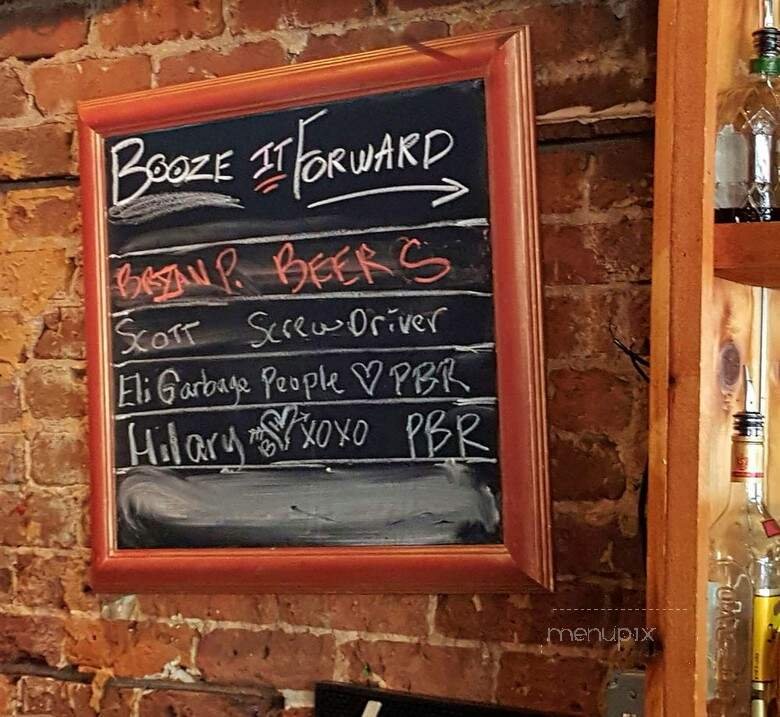 BOOZE IT FORWARD
BRIAN P. BEERS
SCOTT ScrewDriver
Eli Garbage People ♡ PBR
Hilary XOXO PBR
menupix